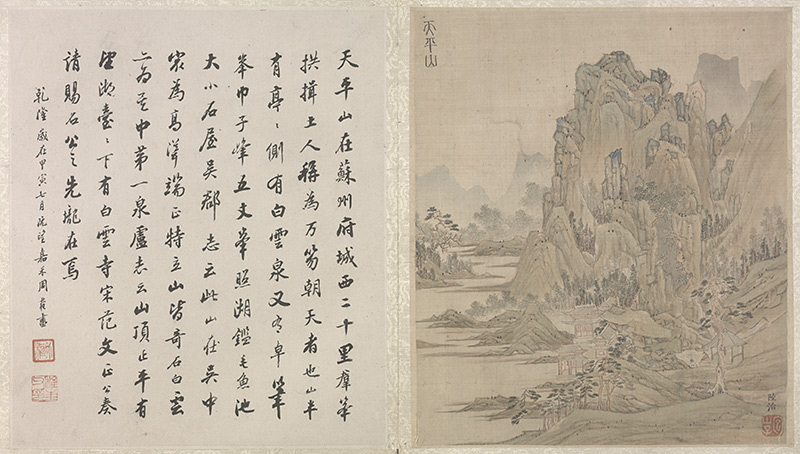 天平山
陸治
天平山在蘇州府城西二十里羣峯
拱揖土人稱為万笏朝天者也山半
有亭〻側有白雲泉又有卓筆
峯巾子峯五丈峯照湖鑑毛魚池
大小石屋吳郡志云此山在吳中
冣為高聳端正特立山皆奇石白雲
為吳中第一泉盧志云山頂正平有
望湖臺〻下有白雲寺宋范文正公奏
請賜石公之先壠在焉
乾隆歲在甲寅七月嘉禾周書